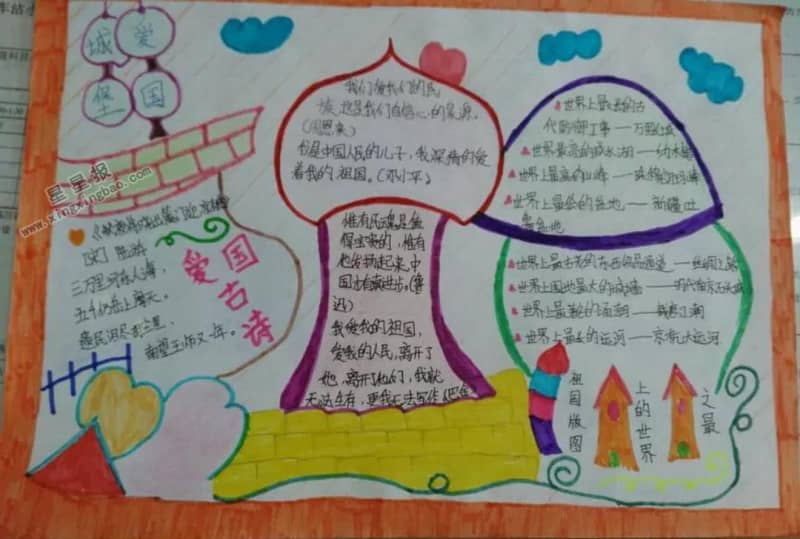 爱国
城堡
星星报
www.xingxingbao.com
[宋] 陆游
三万里河东入海，
五千仞岳上摩天。
遗民泪尽胡尘里，
南望王师又一年。
爱国古诗
我们爱我们的民
族，这是我们自信心的泉源。
(周恩来)
我是中国人民的儿子，我深情的爱
着我的祖国。(邓小平)
惟有民魂是值
得宝贵的，惟有
他发扬起来，中
国才有真进步。(鲁
迅)
我爱我的祖国，
爱我的人民，离开了
她，离开了他们，我就
无法生存，更我无法写作(巴金
世界上最长的古
代防御工事——万里长城
世界最高的咸水湖——纳木错
世界上最高的山峰——珠穆朗玛峰
世界上最
盆地——新疆吐
鲁番盆地
世界上最古老的东西
通道——丝绸之路
世界上
最大的城墙——明代南京石头城
世界上最
的涌潮——钱塘江潮
世界上最长的运河——京杭大运河
祖国版图
上的世界
之最